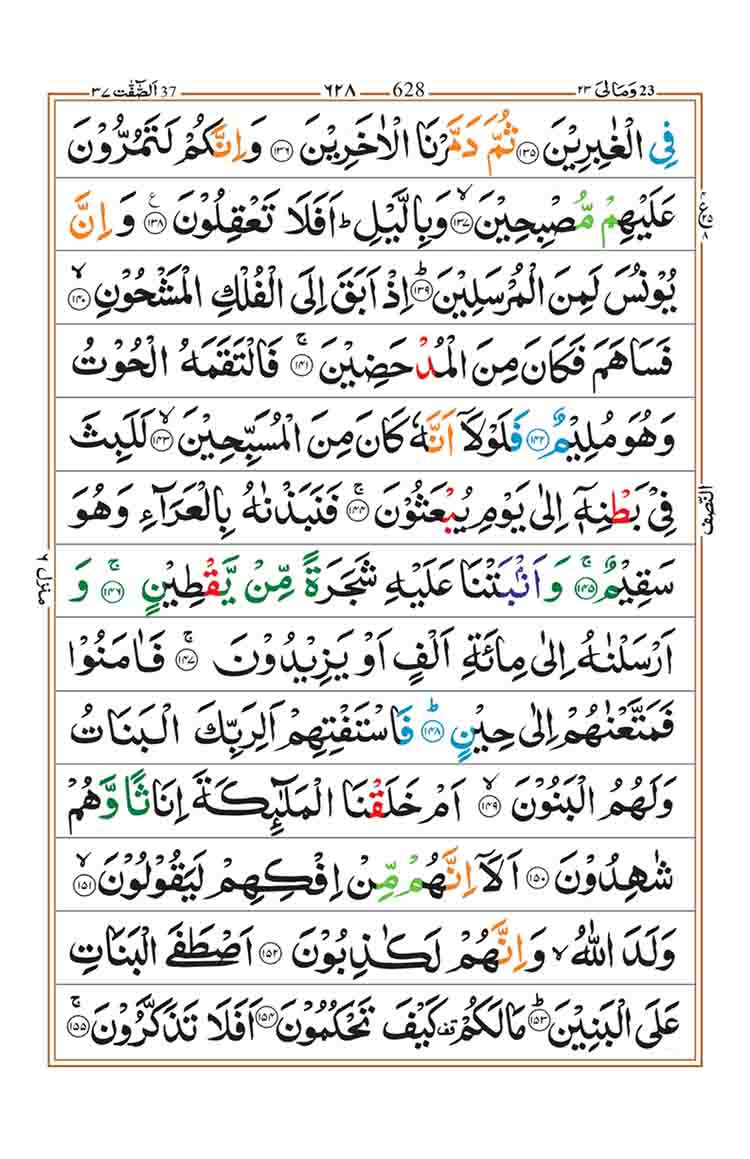 وَمَالِیَ ٢٣ 23 628 ٦٢٨ اَلصّٰٓفّٰت ٣٧ 37
فِی الْغٰبِرِیْنَ ﴿١٣٥﴾ ثُمَّ دَمَّرْنَا الْاٰخَرِیْنَ ﴿١٣٦﴾ وَ اِنَّكُمْ لَتَمُرُّوْنَ
عَلَیْهِمْ مُّصْبِحِیْنَ ﴿١٣٧﴾ۙ وَبِالَّیْلِ ؕ اَفَلَا تَعْقِلُوْنَ ﴿١٣٨﴾ وَ اِنَّ
یُوْنُسَ لَمِنَ الْمُرْسَلِیْنَ ﴿١٣٩﴾ؕ اِذْ اَبَقَ اِلَی الْفُلْكِ الْمَشْحُوْنِ ﴿١٤٠﴾ۙ
فَسَاهَمَ فَكَانَ مِنَ الْمُدْحَضِیْنَ ﴿١٤١﴾ۚ فَالْتَقَمَهُ الْحُوْتُ
وَهُوَ مُلِیْمٌ ﴿١٤٢﴾ فَلَوْلَاۤ اَنَّهٗ كَانَ مِنَ الْمُسَبِّحِیْنَ ﴿١٤٣﴾ۙ لَلَبِثَ
فِیْ بَطْنِهٖۤ اِلٰی یَوْمِ یُبْعَثُوْنَ ﴿١٤٤﴾ۚ فَنَبَذْنٰهُ بِالْعَرَآءِ وَهُوَ
سَقِیْمٌ ﴿١٤٥﴾ۚ وَ اَنْۢبَتْنَا عَلَیْهِ شَجَرَةً مِّنْ یَّقْطِیْنٍ ﴿١٤٦﴾ۚ وَ
اَرْسَلْنٰهُ اِلٰی مِائَةِ اَلْفٍ اَوْ یَزِیْدُوْنَ ﴿١٤٧﴾ۚ فَاٰمَنُوْا
فَمَتَّعْنٰهُمْ اِلٰی حِیْنٍ ﴿١٤٨﴾ؕ فَاسْتَفْتِهِمْ اَلِرَبِّكَ الْبَنَاتُ
وَلَهُمُ الْبَنُوْنَ ﴿١٤٩﴾ۙ اَمْ خَلَقْنَا الْمَلٰٓئِكَةَ اِنَاثًا وَّهُمْ
شٰهِدُوْنَ ﴿١٥٠﴾ اَلَاۤ اِنَّهُمْ مِّنْ اِفْكِهِمْ لَیَقُوْلُوْنَ ﴿١٥١﴾ۙ
وَلَدَ اللّٰهُ ۙ وَ اِنَّهُمْ لَكٰذِبُوْنَ ﴿١٥٢﴾ اَصْطَفَی الْبَنَاتِ
عَلَی الْبَنِیْنَ ﴿١٥٣﴾ؕ مَا لَكُمْ قف كَیْفَ تَحْكُمُوْنَ ﴿١٥٤﴾ اَفَلَا تَذَكَّرُوْنَ ﴿١٥٥﴾ۚ
النّصف
منزل ٦